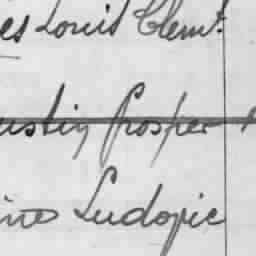 es Louis Clemt.
ustin Prosper
ine Ludovic